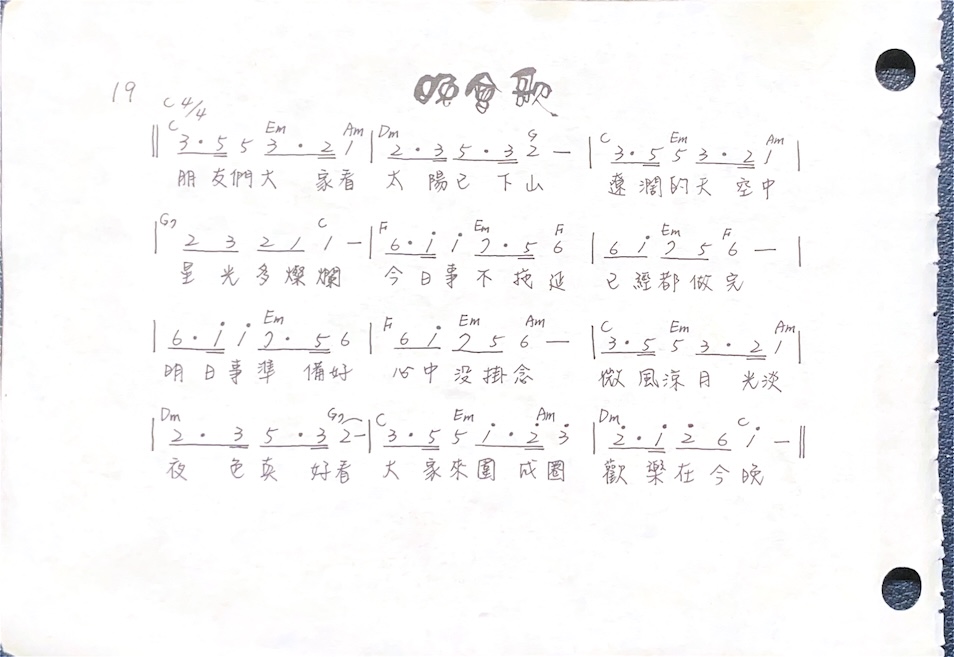 19
晚會歌
C 4/4
C Em Am Dm G C Em Am
‖ 3·5 5 3·2 1 | 2·3 5·3 2 — | 3·5 5 3·2 1 |
朋友們大家看 太陽已下山 遼濶的天空中
G7 C F Em F Em F
| 2 3 2 1 1 — | 6·i̇ i̇ 7·5 6 | 6 i̇ 7 5 6 — |
星光多燦爛 今日事不拖延 已經都做完
Em F Em Am C Em Am
| 6·i̇ i̇ 7·5 6 | 6 i̇ 7 5 6 — | 3·5 5 3·2 1 |
明日事準備好 心中没掛念 微風涼月光淡
Dm G7 C Em Am Dm C
| 2·3 5·3 2 — | 3·5 5 i̇·2̇ 3̇ | 2̇·i̇ 2̇ 6 i̇ — ‖
夜色真好看 大家來圍成圈 歡樂在今晚